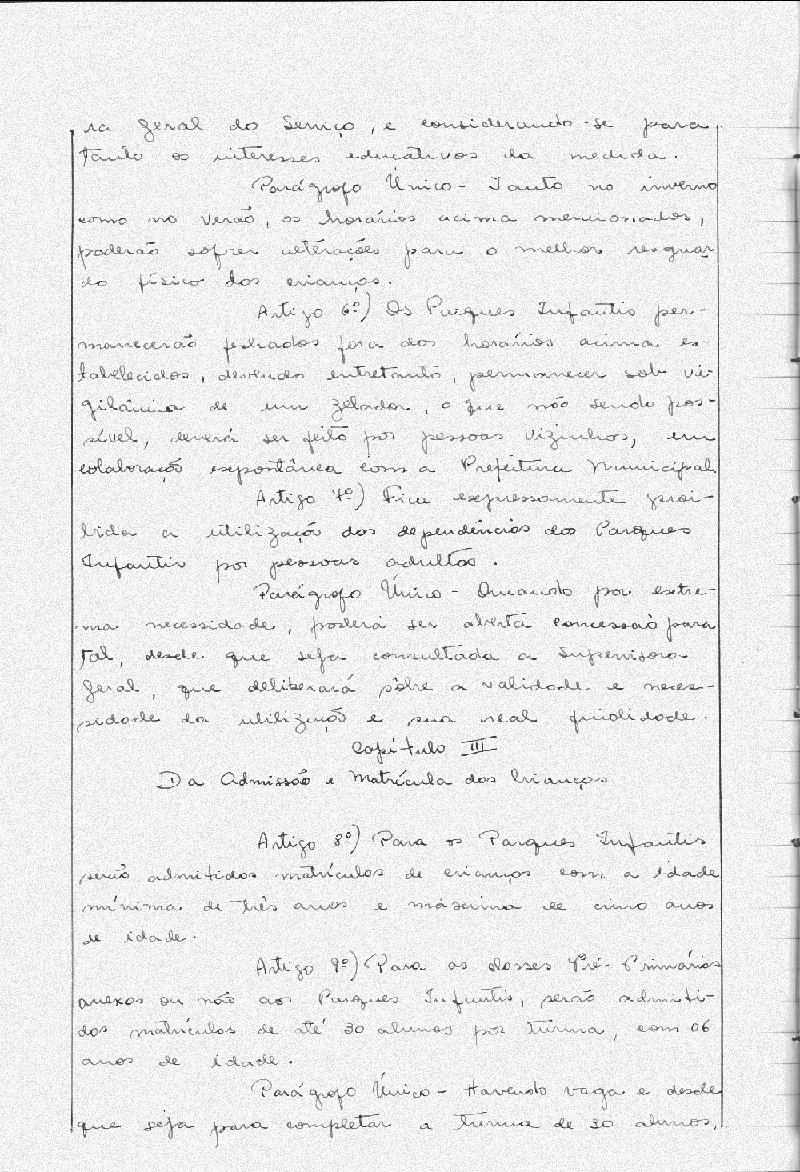 ra Geral do Serviço, e considerando-se para
tanto os interesses educativos da medida.
Parágrafo Único - Tanto no inverno
como no verão, os horários acima mencionados,
poderão sofrer alterações para o melhor resguar
do físico das crianças.
Artigo 6º) Os Parques Infantis per-
manecerão fechados fora dos horários acima es-
tabelecidos, devendo entretanto, permanecer sob vi-
gilância de um zelador, o que não sendo pos-
sível, deverá ser feito por pessoas vizinhas, em
colaboração espontânea com a Prefeitura Municipal.
Artigo 7º) Fica expressamente proi-
bida a utilização das dependências dos Parques
Infantis por pessoas adultas.
Parágrafo Único - Quando por extre-
ma necessidade, poderá ser aberta concessão para
tal, desde que seja consultada a Supervisora
Geral, que deliberará sôbre a validade e neces-
sidade da utilização e sua real finalidade.
Capítulo III
Da Admissão e Matrícula das Crianças
Artigo 8º) Para os Parques Infantis
serão admitidas matrículas de crianças com a idade
mínima de três anos e máxima de cinco anos
de idade.
Artigo 9º) Para as classes Pré-Primárias
anexas ou não aos Parques Infantis, serão admiti-
das matrículas de até 30 alunos por turma, com 06
anos de idade.
Parágrafo Único - Havendo vaga e desde
que seja para completar a turma de 30 alunos,